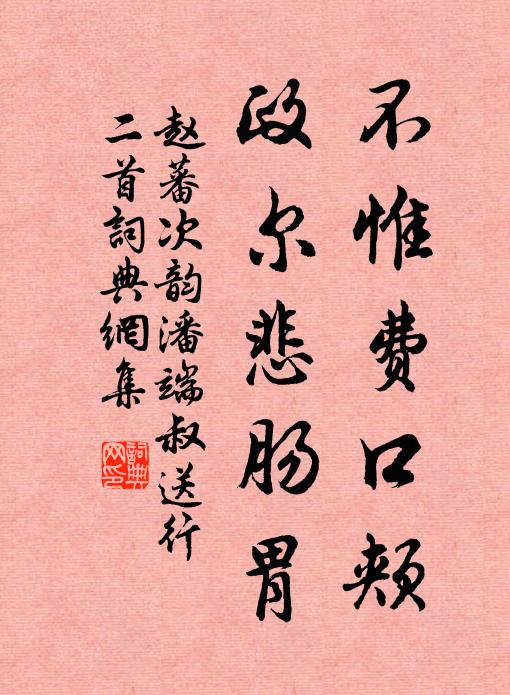 不惟费口颊
政尔悲肠胃
赵蕃次韵潘端叔送行
二首詞典網集
詞典網印